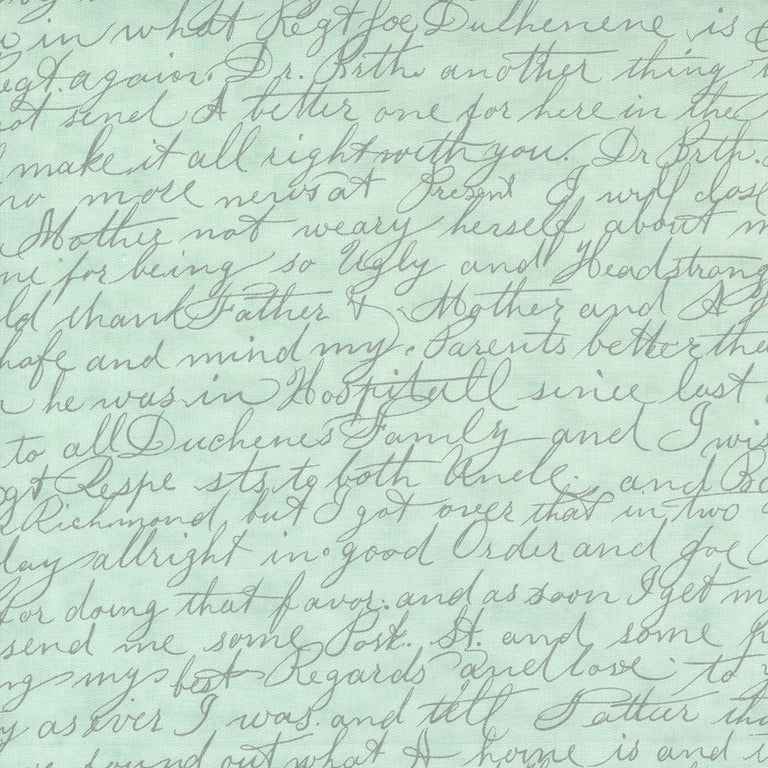 in what Regt Joe Duchenene is
again. Dr. Brth another thing
not send A better one for here in the
make it all right with you. Dr Brth.
no more news at Present I will close
Mother not weary herself about
me for being so Ugly and Headstrong
thank Father & Mother and A
hafe and mind my Parents better the
he was in Hospitall since last
to all Duchenes Family and I wis
Respe sts to both Uncle. and
Richmond, but I got over that in two
day allright in good Order and Joe
for doing that favor. and as soon I get m
send me some Post. St. and some
my best Regards and love to
as ever I was. and tell
found out what A home is and